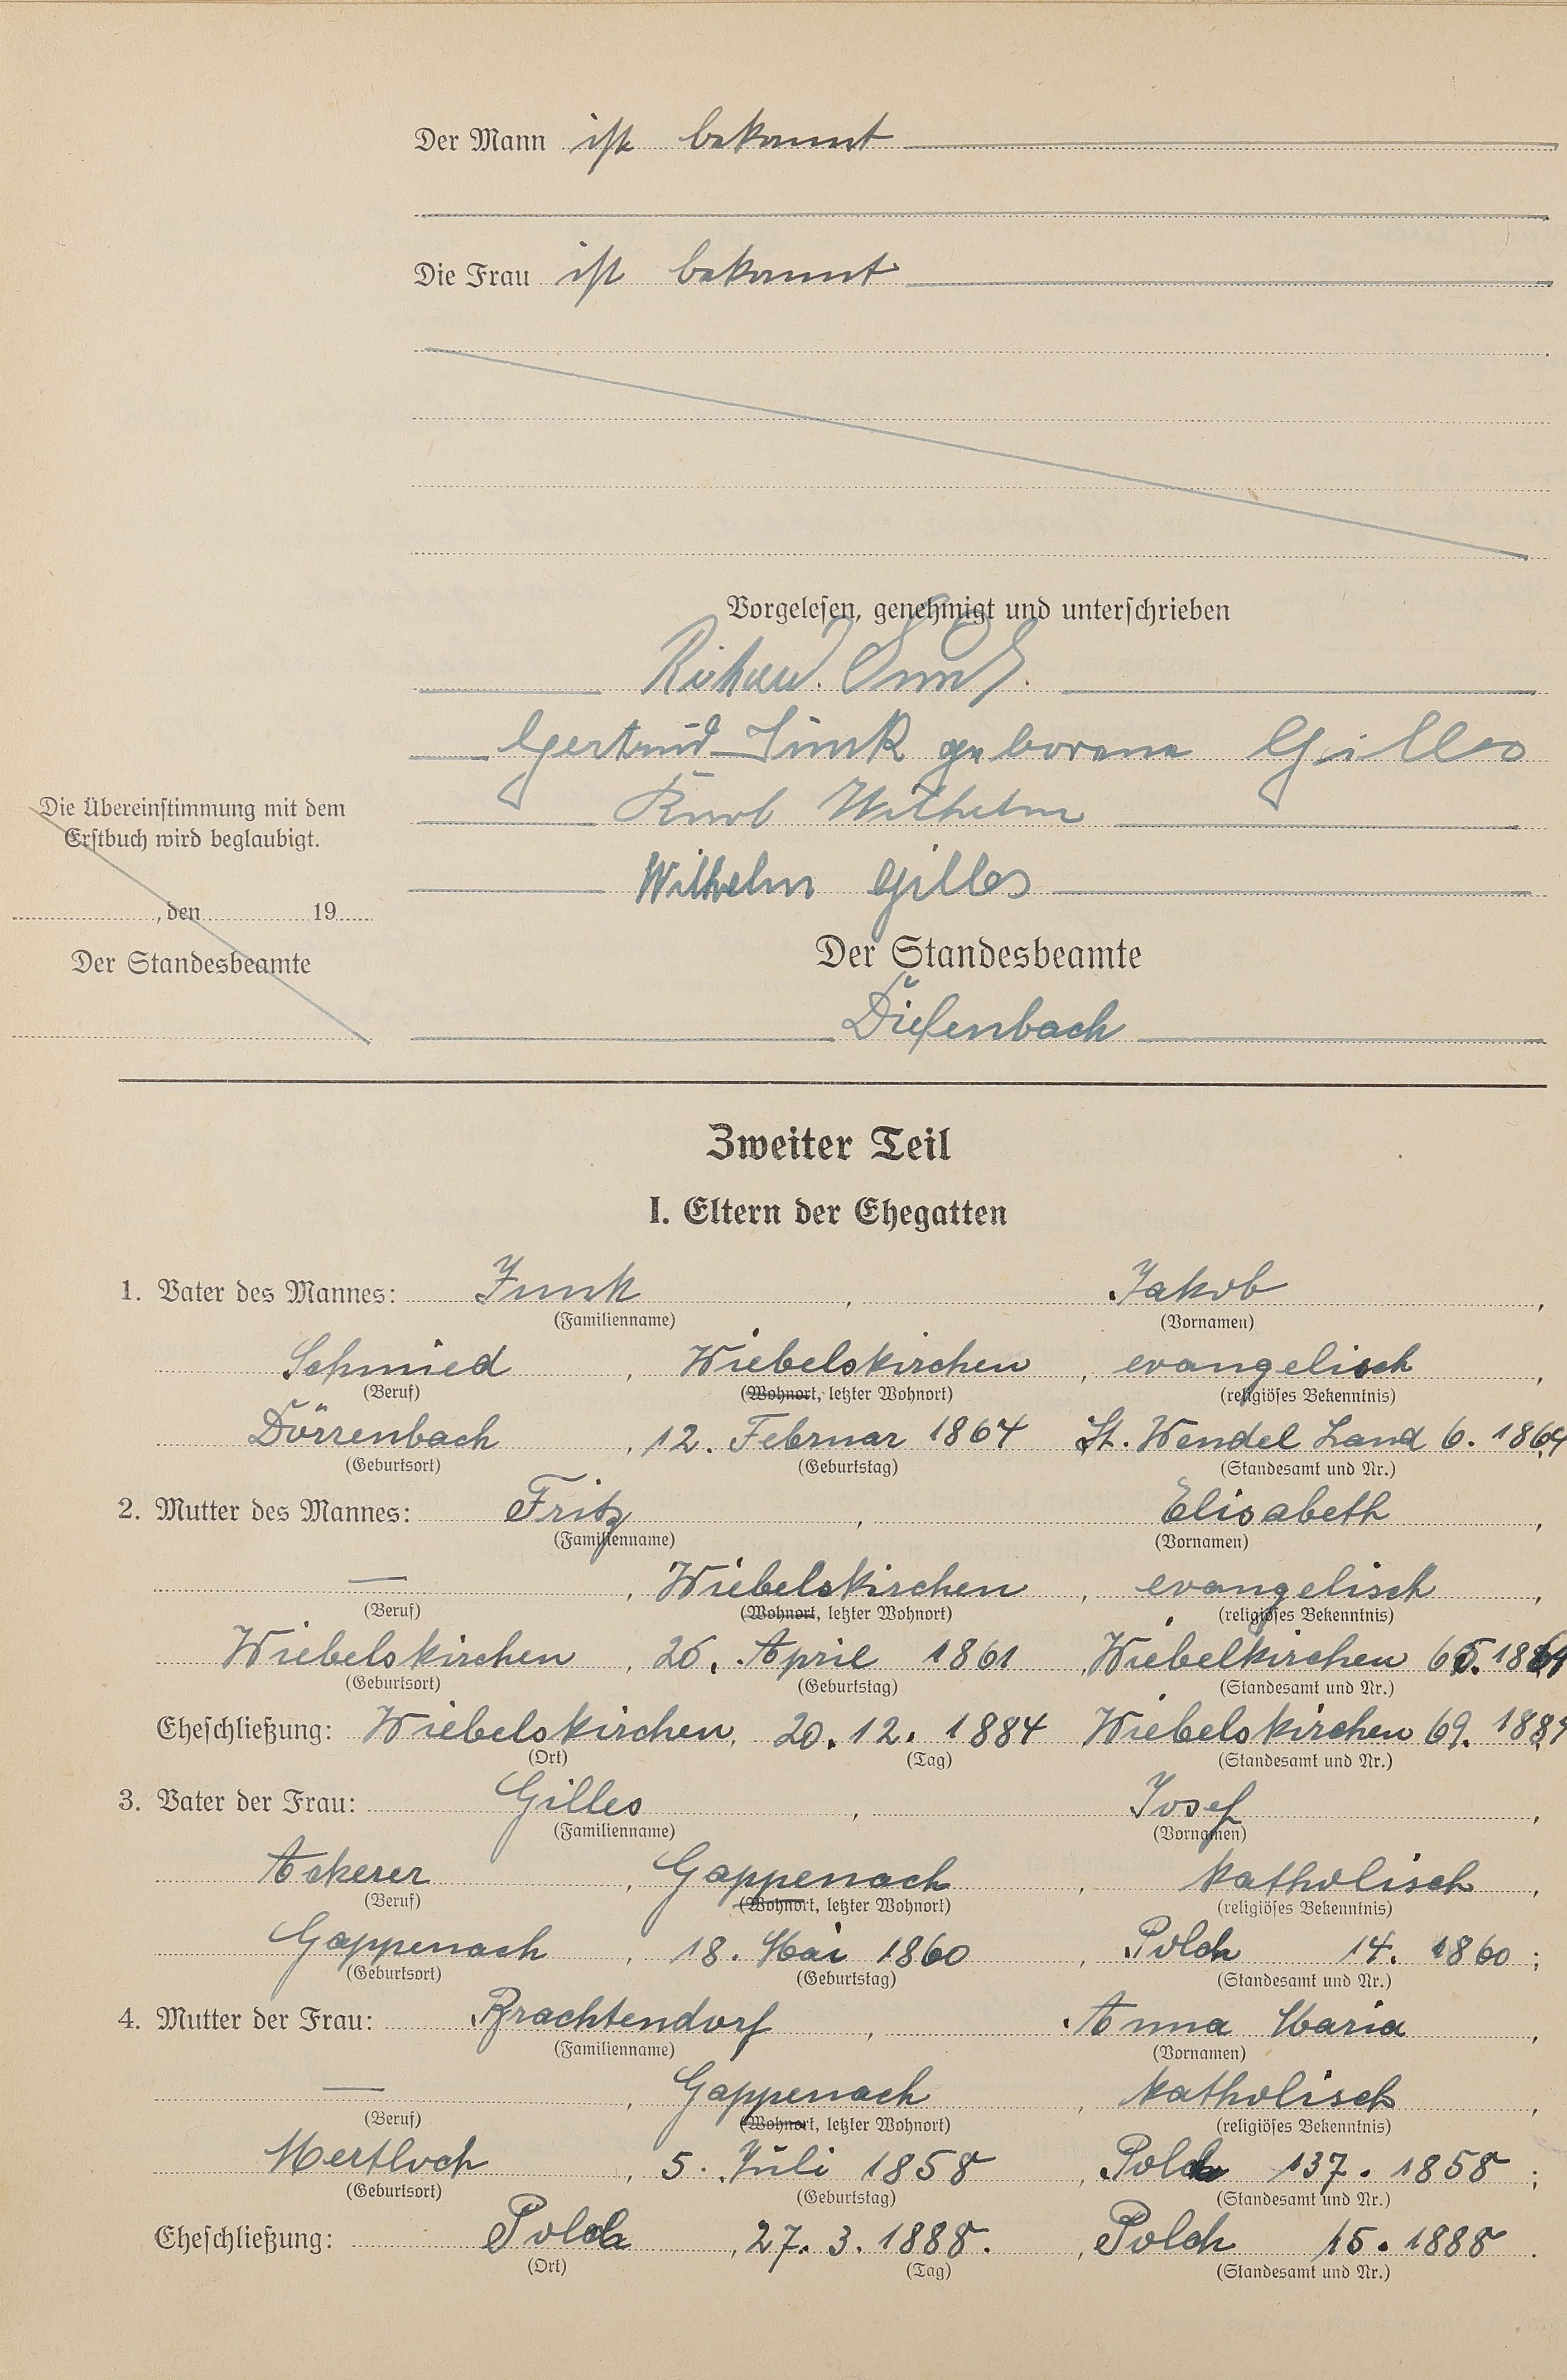 Der Mann ist bekannt
Die Frau ist bekannt
Vorgelesen, genehmigt und unterschrieben
Gertrud Junk geborene Gilles
Karl Wilhelm
Wilhelm Gilles
Die Übereinstimmung mit dem
Erstbuch wird beglaubigt.
, den 19
Der Standesbeamte
Der Standesbeamte
Diefenbach
Zweiter Teil
I. Eltern der Ehegatten
1. Vater des Mannes: Junk , Jakob ,
(Familienname) (Vornamen)
Schmied , Wiebelskirchen , evangelisch ,
(Beruf) (Wohnort, letzter Wohnort) (religiöses Bekenntnis)
Dörrenbach , 12. Februar 1864 St. Wendel Land 6. 1864
(Geburtsort) (Geburtstag) (Standesamt und Nr.)
2. Mutter des Mannes: Fritz , Elisabeth ,
(Familienname) (Vornamen)
— , Wiebelskirchen , evangelisch ,
(Beruf) (Wohnort, letzter Wohnort) (religiöses Bekenntnis)
Wiebelskirchen , 26. April 1861 , Wiebelkirchen
(Geburtsort) (Geburtstag) (Standesamt und Nr.)
Eheschließung: Wiebelskirchen, 20. 12. 1884 Wiebelskirchen 69. 1884
(Ort) (Tag) (Standesamt und Nr.)
3. Vater der Frau: Gilles , Josef ,
(Familienname) (Vornamen)
Ackerer , Gappenach , katholisch ,
(Beruf) (Wohnort, letzter Wohnort) (religiöses Bekenntnis)
Gappenach , 18. Mai 1860 , Polch 14. 1860 ;
(Geburtsort) (Geburtstag) (Standesamt und Nr.)
4. Mutter der Frau: Brachtendorf , Anna Maria ,
(Familienname) (Vornamen)
— , Gappenach , katholisch ,
(Beruf) (Wohnort, letzter Wohnort) (religiöses Bekenntnis)
Mertloch , 5. Juli 1858 , Polch 137. 1858 ;
(Geburtsort) (Geburtstag) (Standesamt und Nr.)
Eheschließung: Polch , 27. 3. 1888. , Polch 15. 1888 .
(Ort) (Tag) (Standesamt und Nr.)